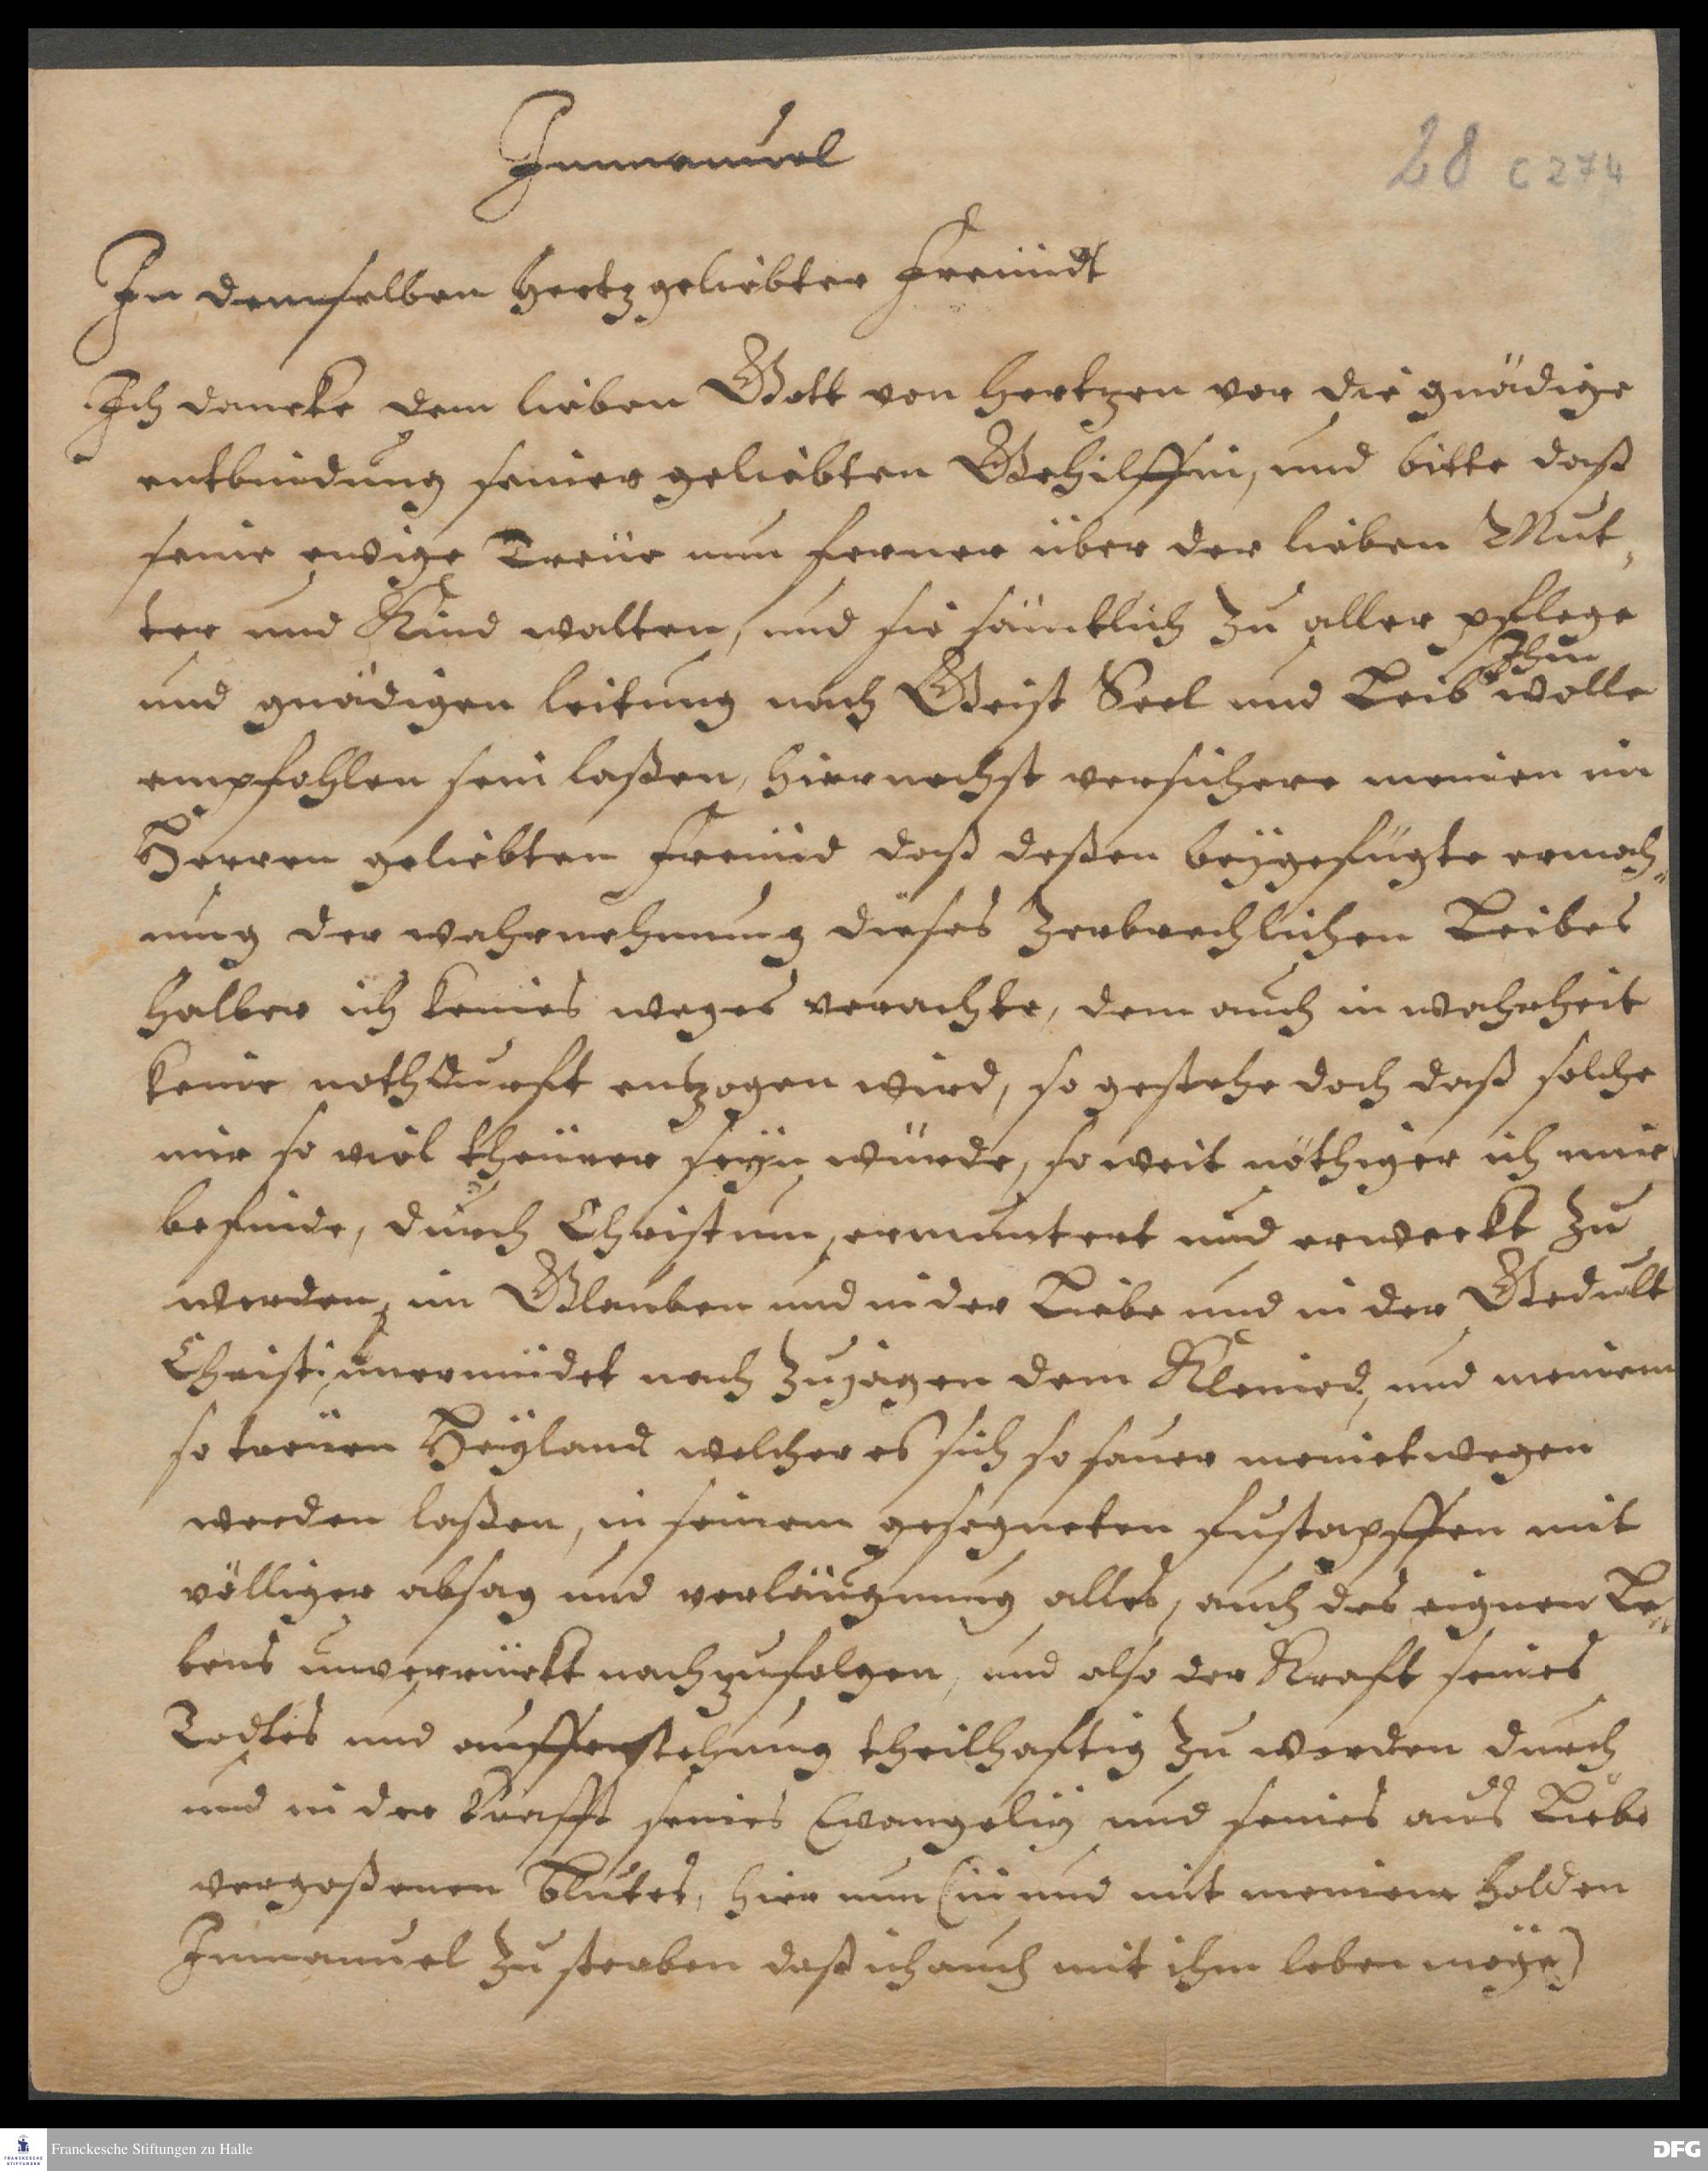 Immanuel
28 C 274
In demselben hertzgeliebter Freündt
Ich dancke dem lieben Gott von hertzen vor die gnädige
entbindung seiner geliebten Gehilffin, und bitte daß
seine ewige Treüe nun ferner über der lieben Mut,
ter und Kind walten, und sie sämtlich zu aller pflege
Ihm
und gnädigen leitung nach Geist Seel und Leib wolle
empfohlen sein laßen, hiernechst versichere meinen in
Herren geliebten Freünd daß deßen beÿgefügte ermah„
nung der wahrnehmung dieses zerbrechlichen Leibes
halber ich keines weges verachte, dem auch in wahrheit
keine nothdurfft entzogen wird, so gestehe doch daß solche
mir so viel theürer seÿn würde, so weit nöthiger ich mir
befinde, durch Christum, ermuntert und erweckt zu
werden, im Glauben und in der Liebe und in der Gedult
Christi, unermüdet nach zujagen dem Kleinod, und meinem
so treüen Heÿland welcher es sich so sauer meinetwegen
werden laßen, in seinem gesegneten fustapffen mit
völliger absag und verläugnung alles, auch des eignen Le„
bens unverrückt nachzufolgen, und also der Kraft seines
Todtes und aufferstehung theilhaftig zu werden durch
und in der krafft seines Evangelÿ und seines aus Liebe
vergoßenen Blutes, hier nun (in und mit meinem holden
Immanuel zu sterben daß ich auch mit ihm leben möge)
Franckesche Stiftungen zu Halle
FRANCKESCHE STIFTUNGEN
DFG